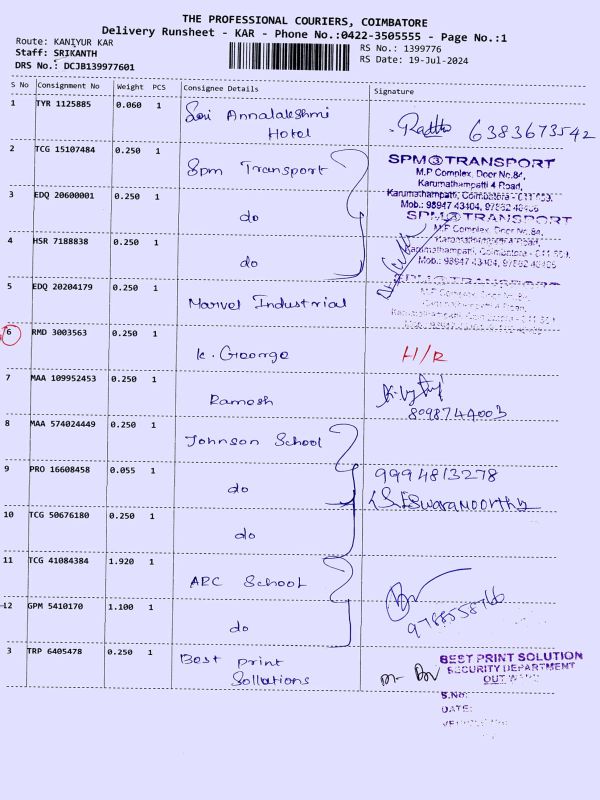 THE PROFESSIONAL COURIERS, COIMBATORE
Delivery Runsheet - KAR - Phone No.:0422-3505555 - Page No.:1
Route: KANIYUR KAR
RS No.: 1399776
Staff: SRIKANTH
RS Date: 19-Jul-2024
DRS No.: DCJB139977601
S No Consignment No Weight PCS Consignee Details Signature
1 TYR 1125885 0.060 1 Sri Annalakshmi
Hotel
6383673542
2 TCG 15107484 0.250 1 Spm Transport
SPM TRANSPORT
M.P Complex, Door No.8A,
Karumathampatti 4 Road,
Karumathampatti, Coimbatore - 641 659.
Mob.: 98947 43404, 97882 40406
3 EDQ 20600001 0.250 1 do
SPM TRANSPORT
M.P Complex, Door No.8A,
Karumathampatti 4 Road,
4 HSR 7188838 0.250 1 do
5 EDQ 20204179 0.250 1 Marvel Industrial
6 RMD 3003563 0.250 1 K. George H/R
7 MAA 109952453 0.250 1 Ramesh
8098744003
8 MAA 574024449 0.250 1 Johnson School
9 PRO 16608458 0.055 1 do
9994813278
Eswaramoorthy
10 TCG 50676180 0.250 1 do
11 TCG 41084384 1.920 1 ARC School
12 GPM 5410170 1.100 1 do
3 TRP 6405478 0.250 1 Best print
Sollutions
BEST PRINT SOLUTION
SECURITY DEPARTMENT
S.No:
DATE: